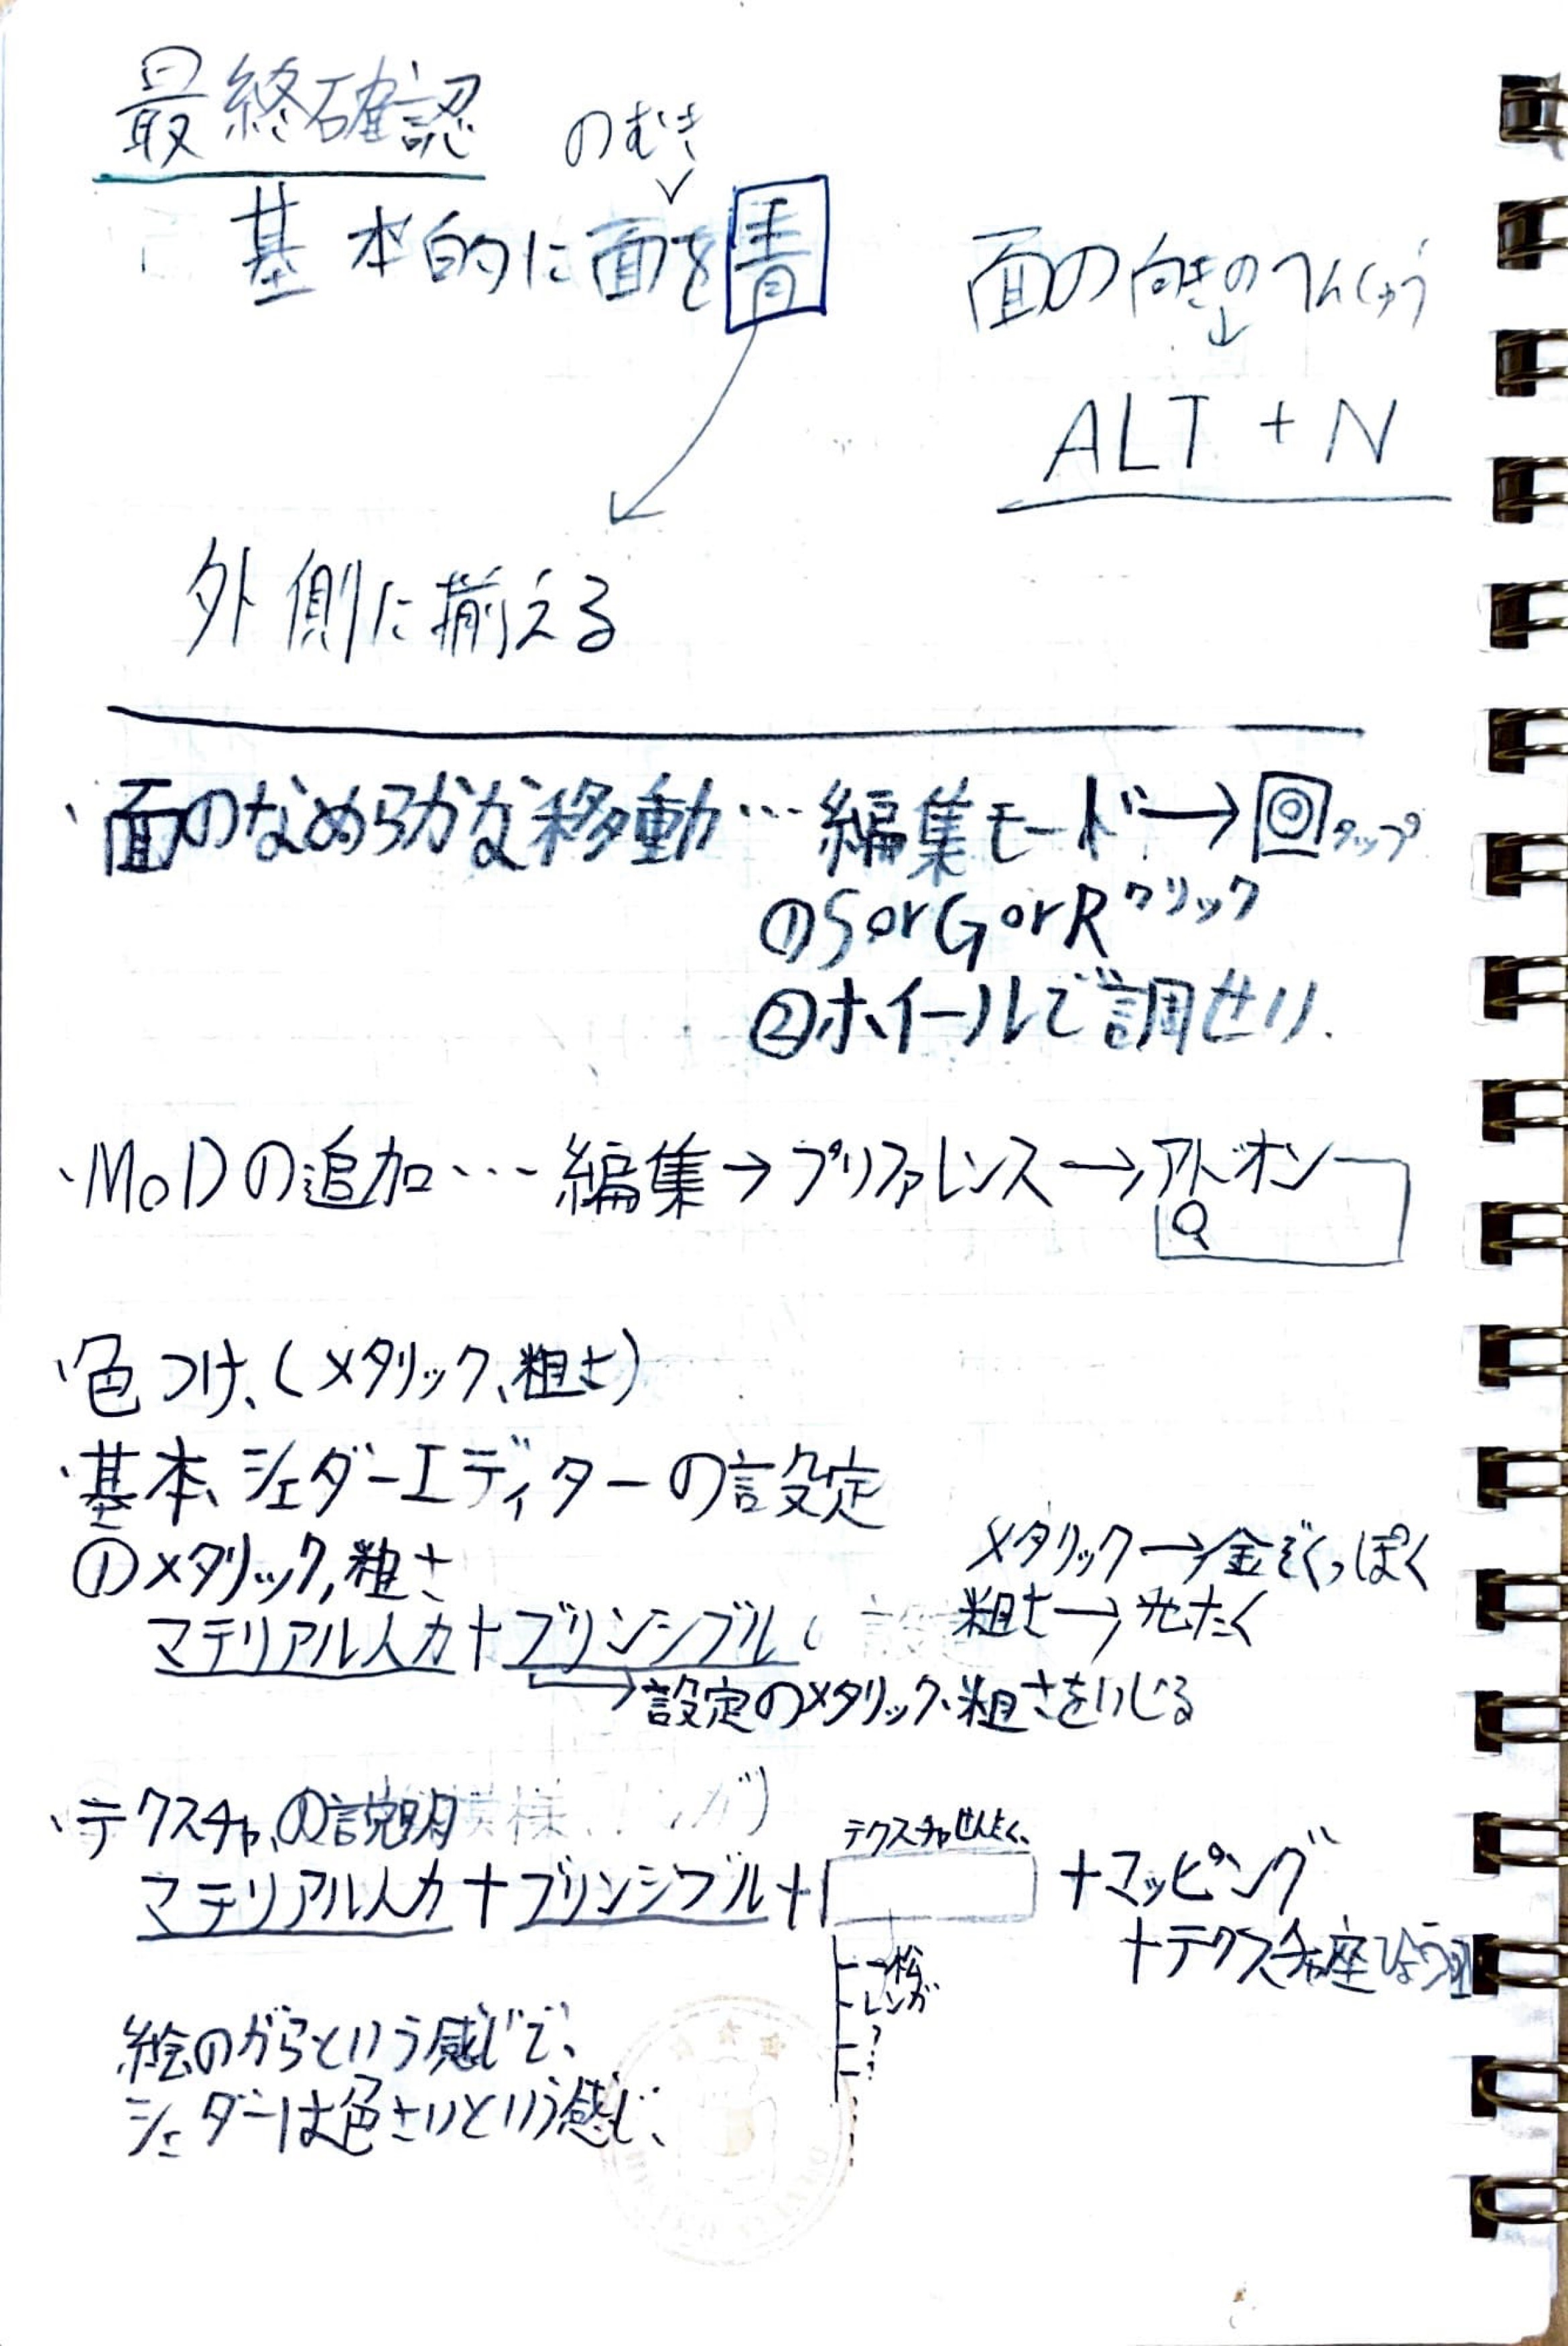 最終確認
のむき
基本的に面を青
面の向きのへんしゅう
ALT + N
外側に揃える
・面のなめらかな移動… 編集モード→ タップ
①SorGorRクリック
②ホイールで調せい.
・MoDの追加… 編集→プリファレンス→アドオン
・色つけ、(メタリック、粗さ)
・基本、シェダーエディターの設定
①メタリック,粗さ
メタリック→金ぞくっぽく
マテリアル入力+プリンシプル
設定のメタリック、粗さをいじる
・テクスチャ、の説明
テクスチャせんたく、
マテリアル入力+プリンシプル+ +マッピング
+テクスチャ座ひょう
レンガ
?
絵のがらという感じで、
シェダーは色さいという感じ、